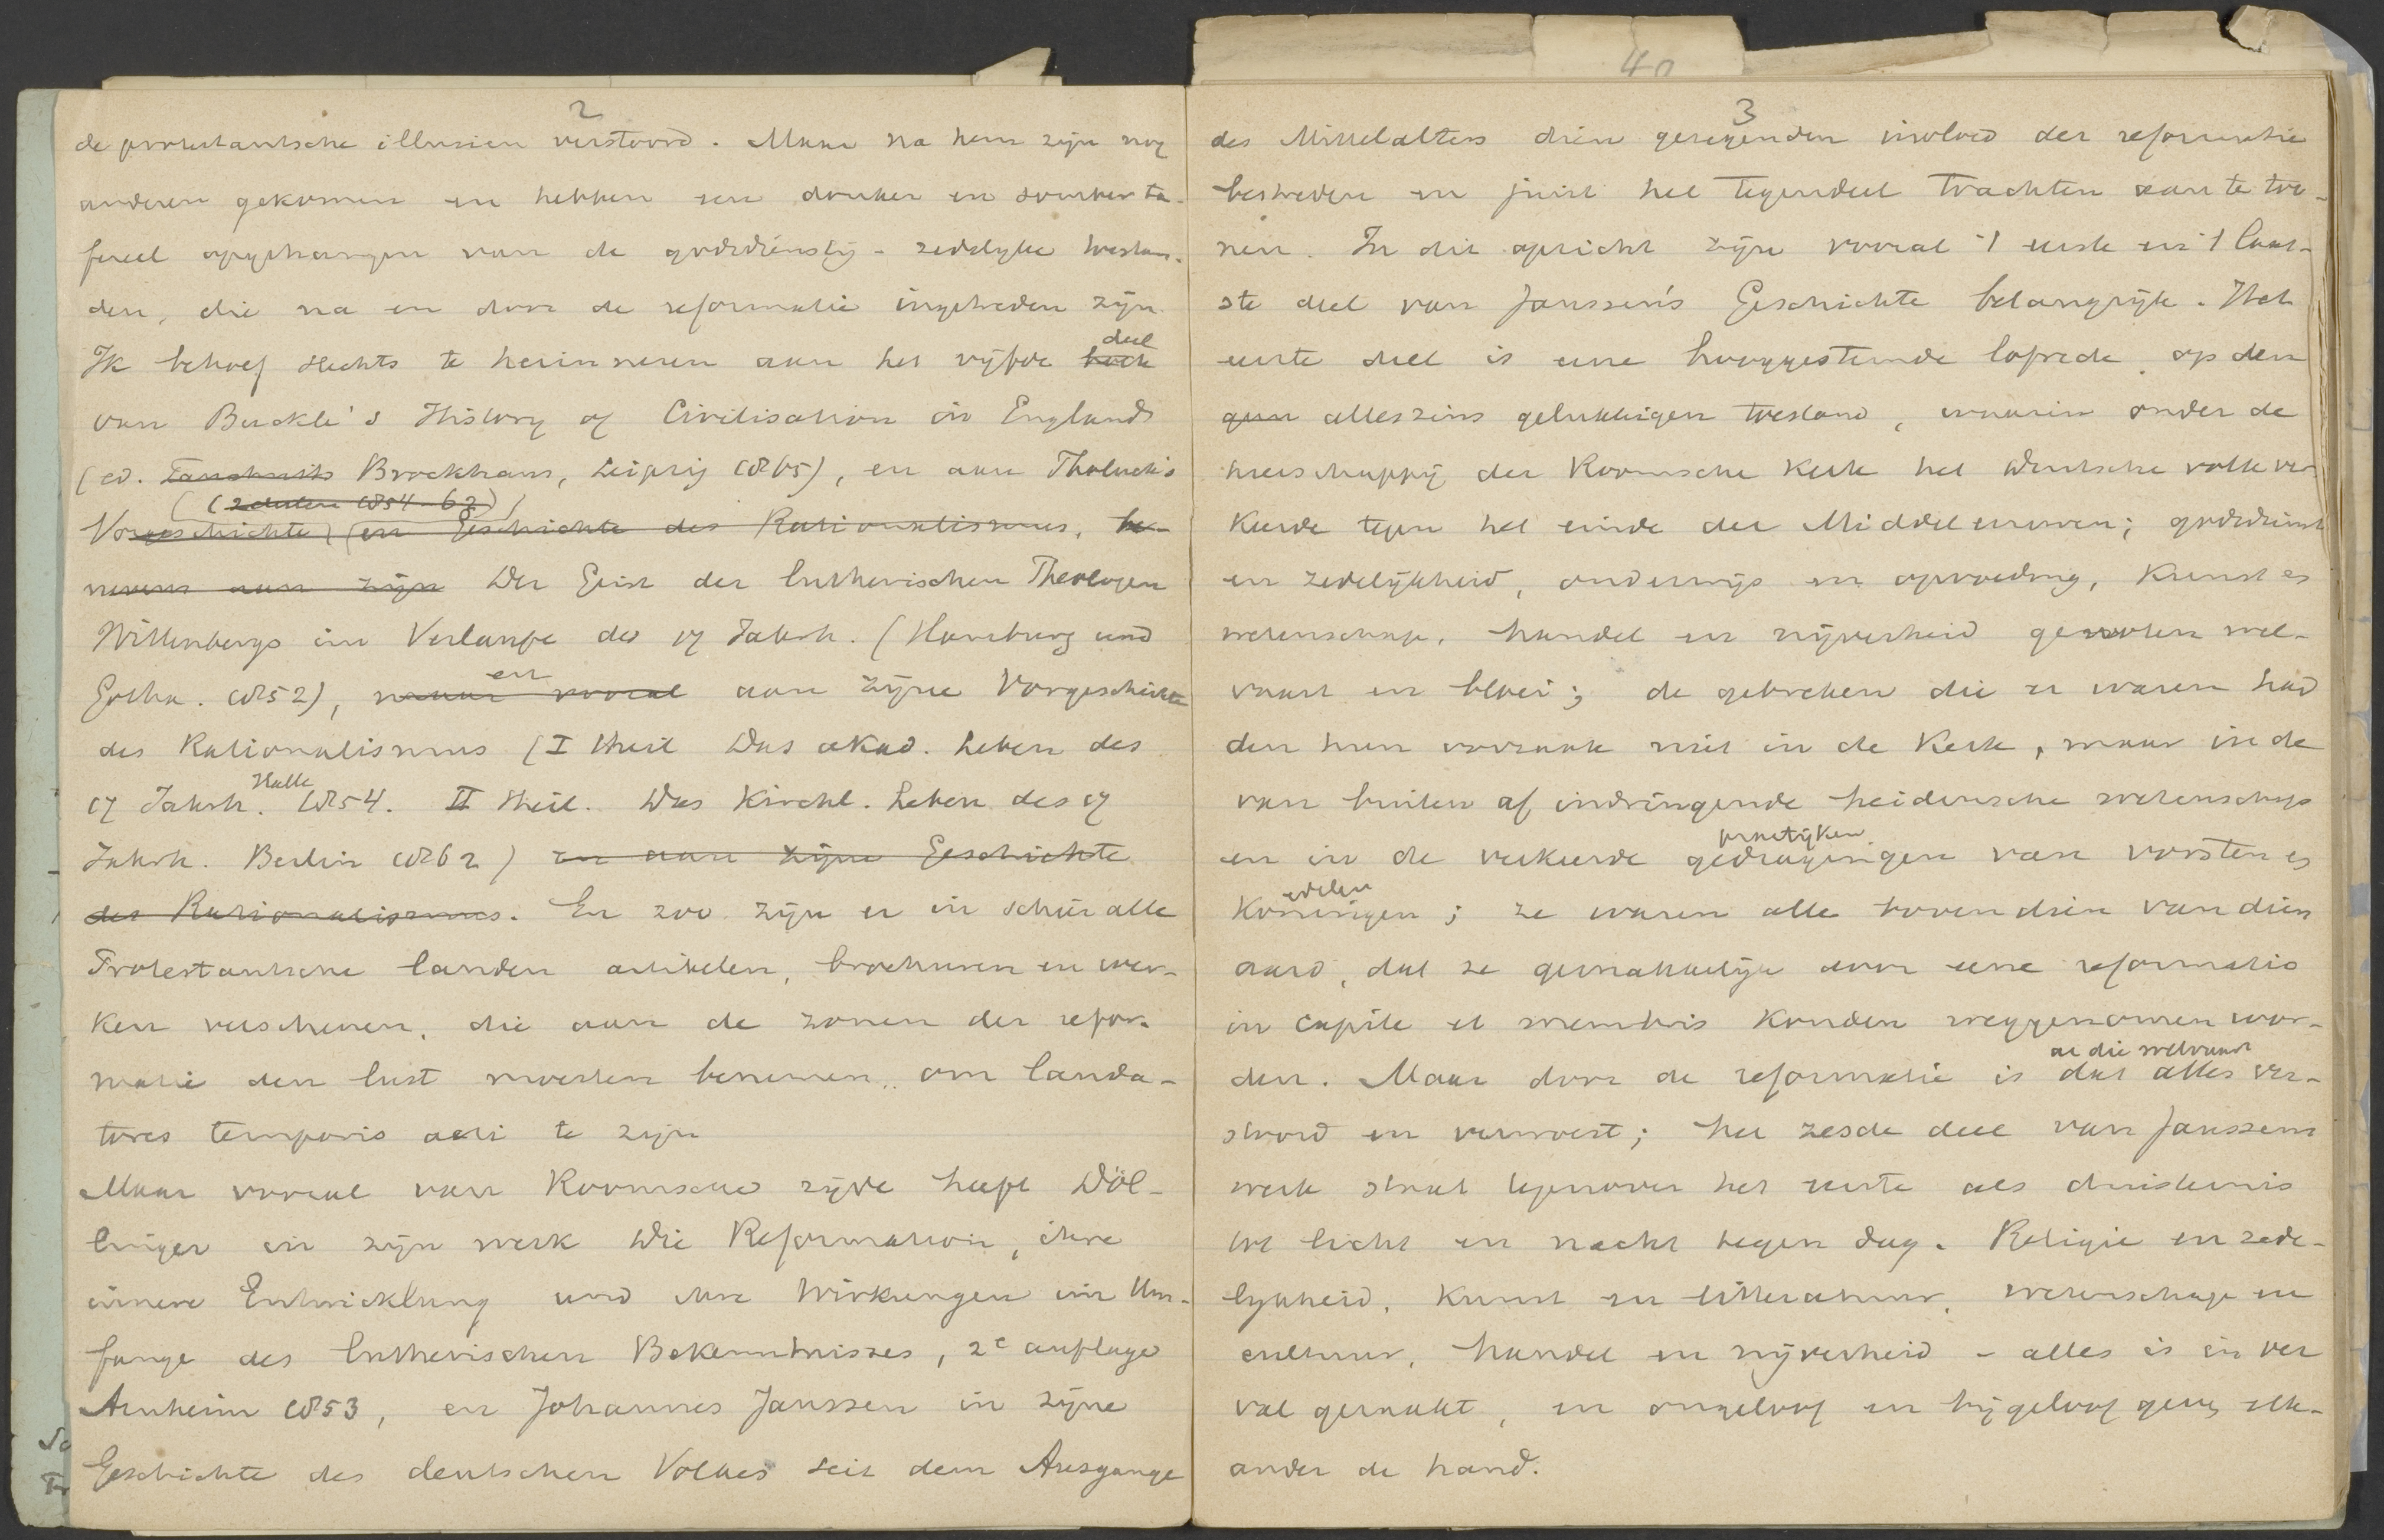 2
de protestantsche illusien verstoord. Maar na hem zijn nog
anderen gekomen en hebben een donker en somber ta-
fereel opgehangen van de godsdienstig-zedelyke toestan-
den, die na en door de reformatie ingetreden zijn.
deel
Ik behoef slechts te herinneren aan het vijfde boek
van Buckle's History of Civilisation in England
(ed. Tauchnitz Brockhaus, Leipzig 1865), en aan Tholuck's
(2 deelen 1854-62)
Vorgeschichte (en Geschichte des Rationalismus, be-
nevens aan zijn Der Geist der lutherischen Theologen
Wittenbergs im Verlaufe des 17 Jahrh. (Hamburg und
en
Gotha. 1852), maar vooral aan zijne Vorgeschichte
des Rationalismus (I theil Das akad. Leben des
Halle
17 Jahrh. 1854. II theil. Das Kirchl. Leben des 17
Jahrh. Berlin 1862) en aan zijne Geschichte
des Rationalismus. En zoo zijn er in schier alle
Protestantsche landen artikelen, brochuren en wer-
ken verschenen, die aan de zonen der refor-
matie den lust moesten benemen, om lauda-
tores temporis acti te zijn
Maar vooral van Roomsche zijde heeft Döl-
linger in zijn werk Die Reformation, ihre
innere Entwicklung und ihre Wirkungen im Um-
fange des lutherischen Bekenntnisses, 2e auflage
Arnheim 1853, en Johannes Janssen in zijne
Geschichte des deutschen Volkes seit dem Ausgange
40
3
des Mittelalters dien gezegenden invloed der reformatie
bestreden en juist het tegendeel trachten aan te too-
nen. In dit opzicht zijn vooral 't eerste en 't laat-
ste deel van Janssen's Geschichte belangrijk. Het
eerste deel is eene hooggestemde lofrede op den
alleszins gelukkigen toestand, waarin onder de
heerschappij der Roomsche Kerk het duitsche volk ver-
keerde tegen het einde der Middeleeuwen; godsdienst
en zedelijkheid, onderwijs en opvoeding, kunst en
wetenschap, handel en nijverheid genoten wel-
vaart en bloei; de gebreken die er waren had
den hun oorzaak niet in de Kerk, maar in de
van buiten af indringende heidensche wetenschap
practijken
en in de verkeerde gedragingen van vorsten en
edelen
Koningen; ze waren alle bovendien van dien
aard, dat ze gemakkelijk door eene reformatio
in capite et membris konden weggenomen wor-
al die welvaart
den. Maar door de reformatie is dat alles ver-
stoord en verwoest; het zesde deel van Janssens
werk staat tegenover het eerste als duisternis
tot licht en nacht tegen dag. Religie en zede-
lijkheid, kunst en litteratuur, wetenschap en
cultuur, handel en nijverheid - alles is in ver
val geraakt, en ongeloof en bijgeloof geven elk-
ander de hand.